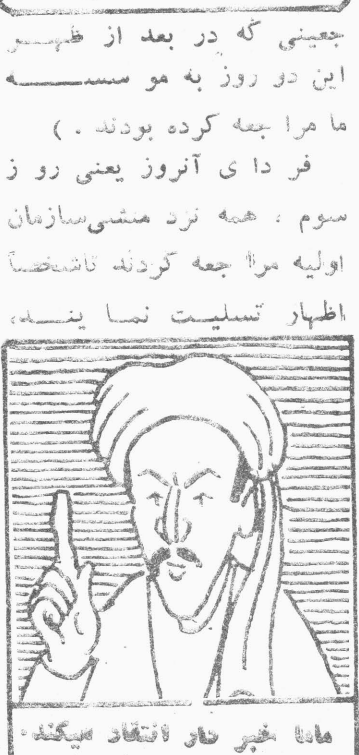 جعینی که در بعد از ظهـــر
این دو روز به مو سســـــه
ما مرا جعه کرده بودند . )
فر دا ی آنروز یعنی رو ز
سوم ، همه نزد منشی سازمان
اولیه مرا جعه کردند تاشخصاً
اظهار تسلیت نما ینـــد،
ماما خبر دار انتقاد میکند.